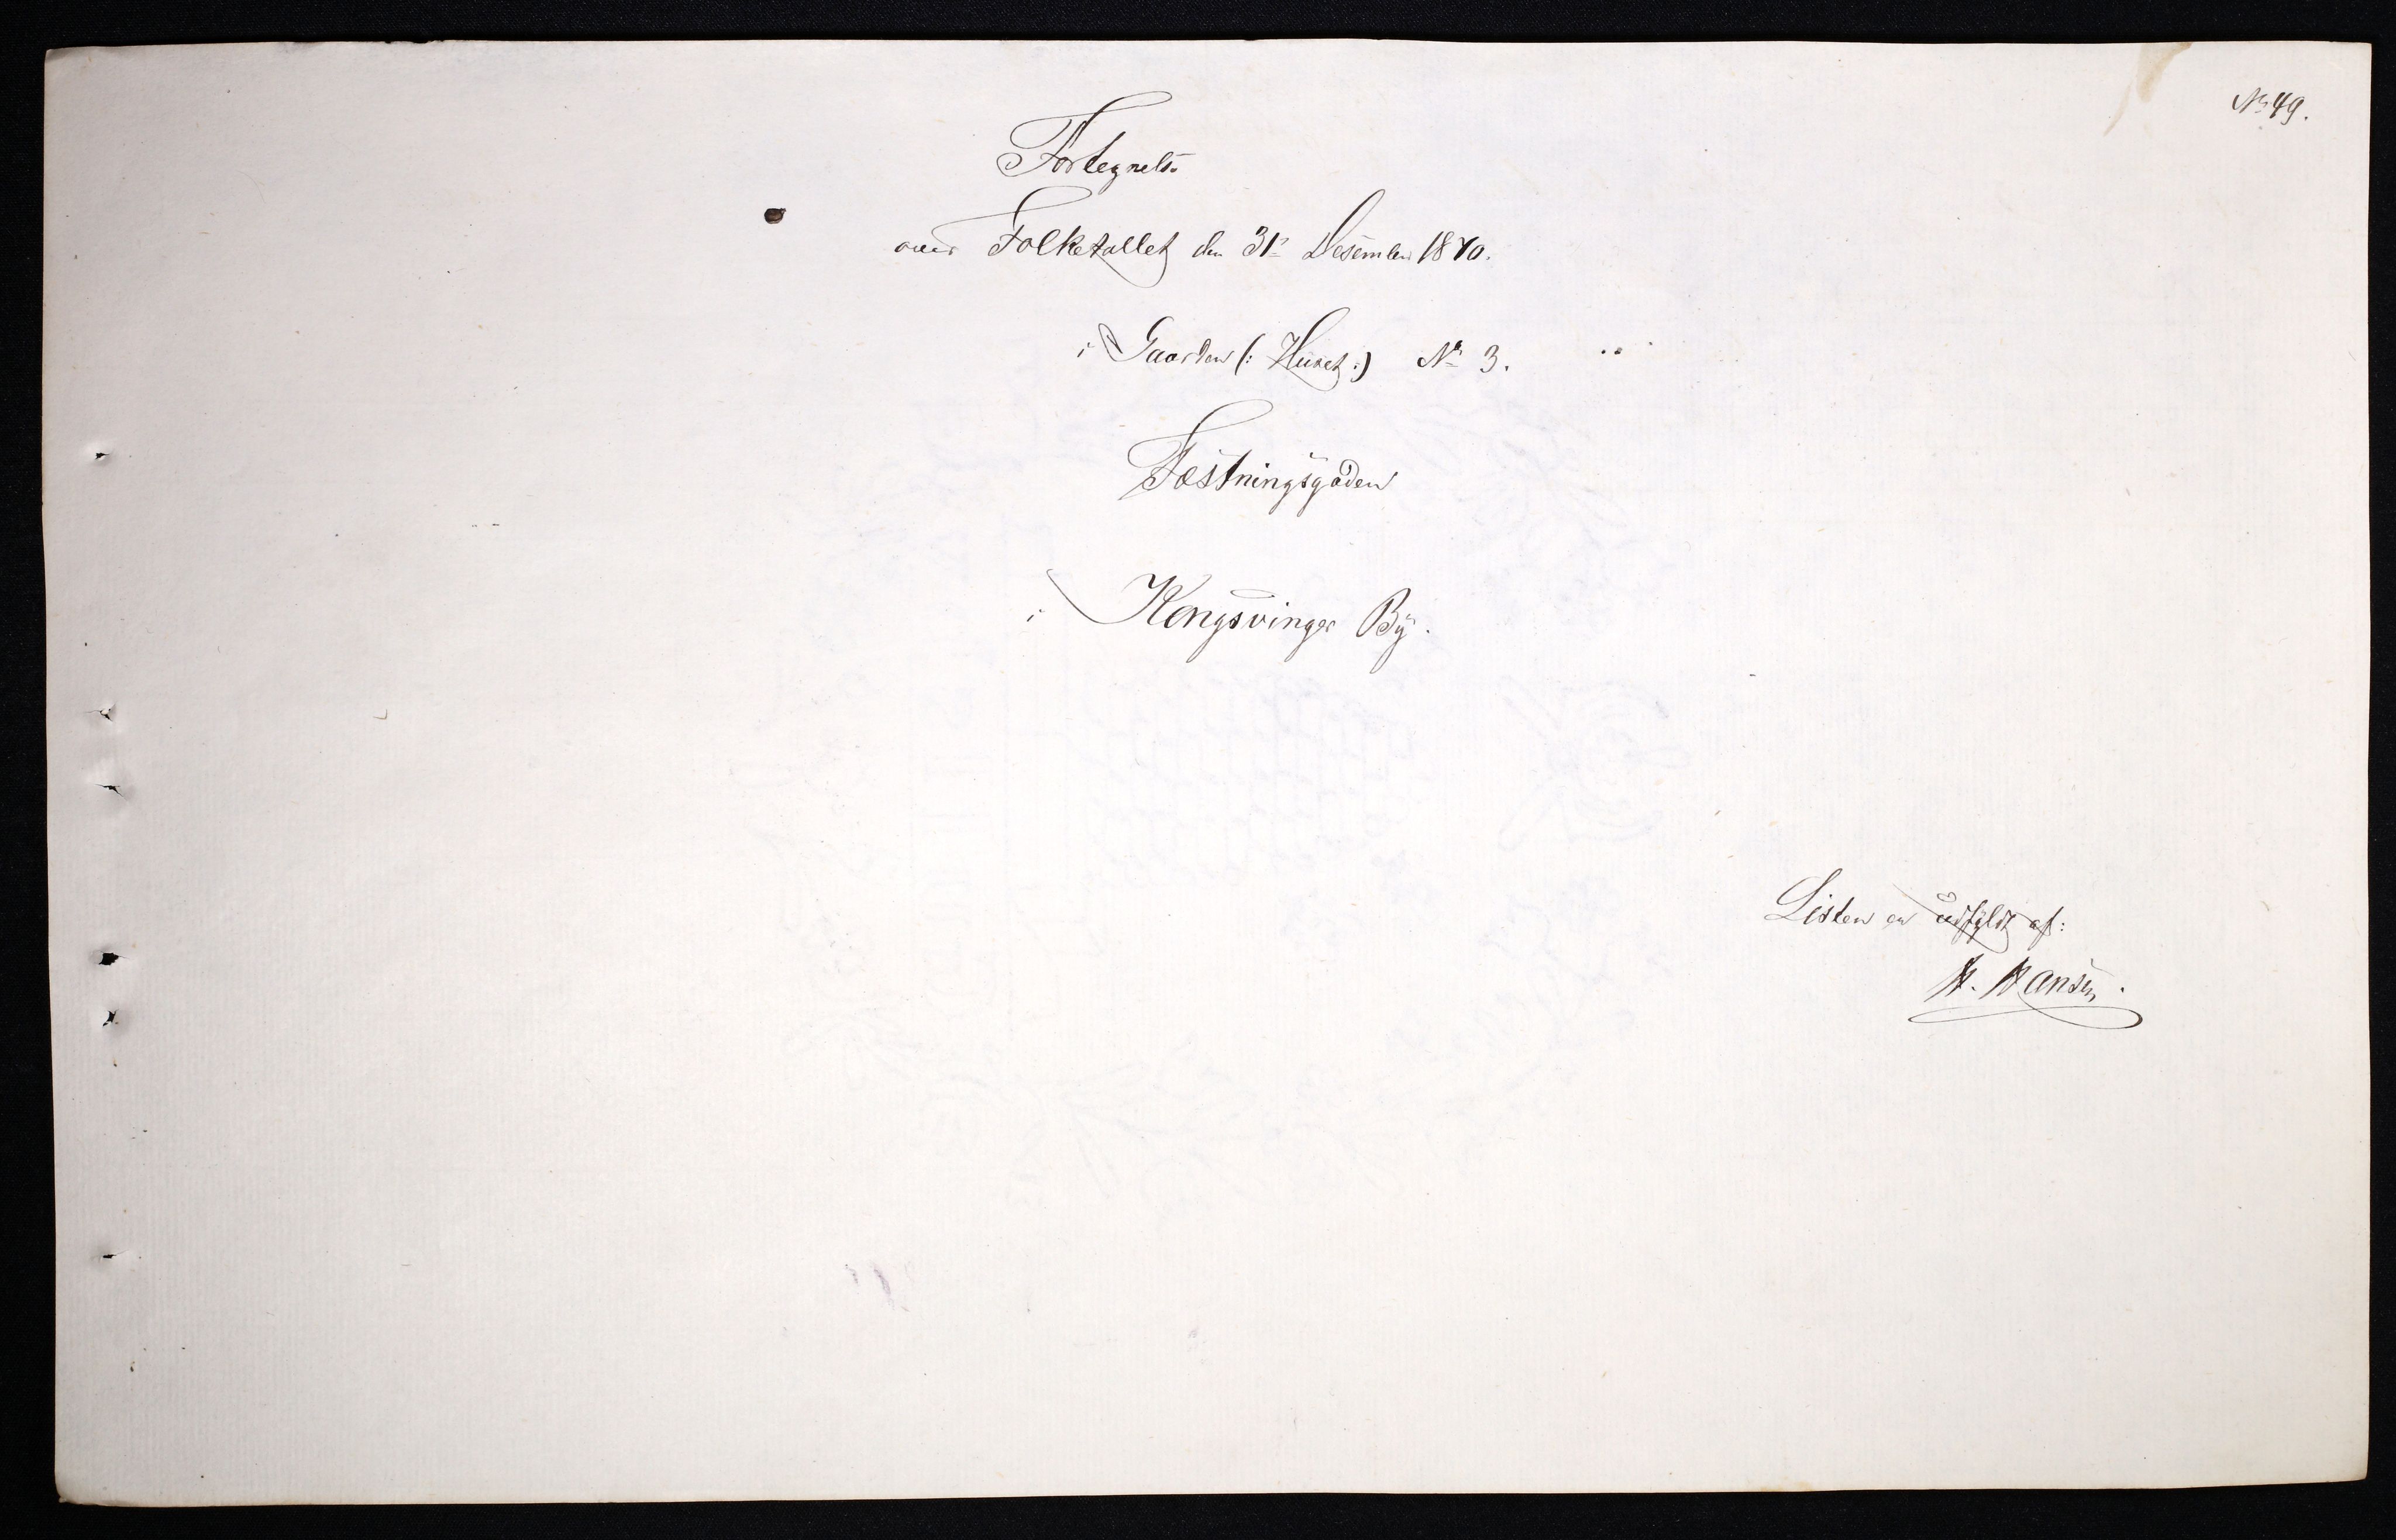 No 49.
Fortegnelse
over Folketallet den 31te Desember 1870.
i Gaarden (: Huset :) No 3.
Fæstningsgaden
i Kongsvinger By.
Listen er udfyldt af:
H. Hansen.